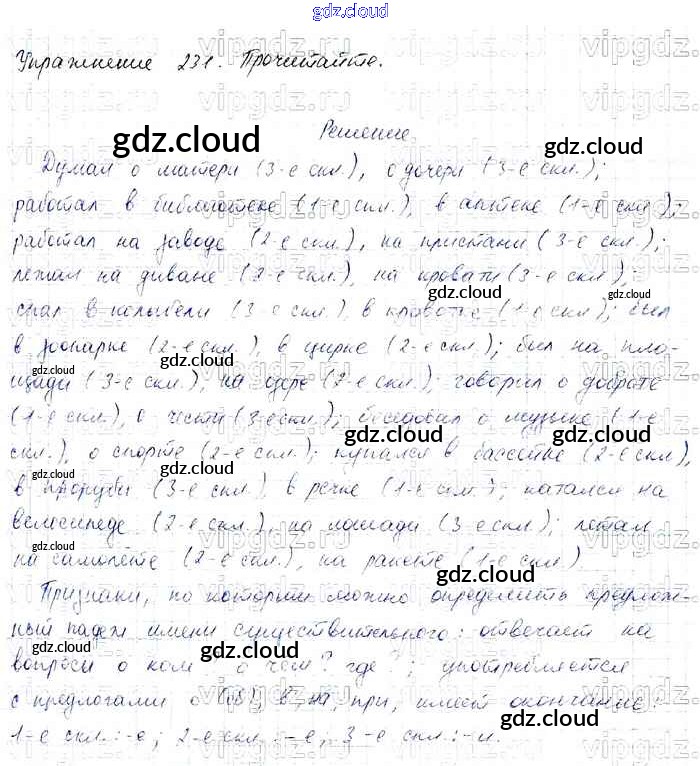 gdz.cloud
Упражнение 231. Прочитайте.
Решение
Думал о матери (3-е скл.), о дочери (3-е скл.);
работал в библиотеке (1-е скл.), в аптеке (1-е скл.);
работал на заводе (2-е скл.), на пристани (3-е скл.);
лежал на диване (2-е скл.), на кровати (3-е скл.);
спал в колыбели (3-е скл.), в кроватке (1-е скл.); был
в зоопарке (2-е скл.), в цирке (2-е скл.); был на пло-
щади (3-е скл.), на озере (2-е скл.); говорил о доброте
(1-е скл.), о чести (3-е скл.); беседовал о музыке (1-е
скл.), о спорте (2-е скл.); купался в бассейне (2-е скл.),
в проруби (3-е скл.), в речке (1-е скл.); катался на
велосипеде (2-е скл.), на лошади (3-е скл.); летал
на самолёте (2-е скл.), на ракете (1-е скл.)
Признаки, по которым можно определить предлож-
ный падеж имени существительного: отвечает на
вопросы о ком? о чём? где?; употребляется
с предлогами о (об), в, на, при, имеет окончание:
1-е скл.: -е; 2-е скл.: -е; 3-е скл.: -и.